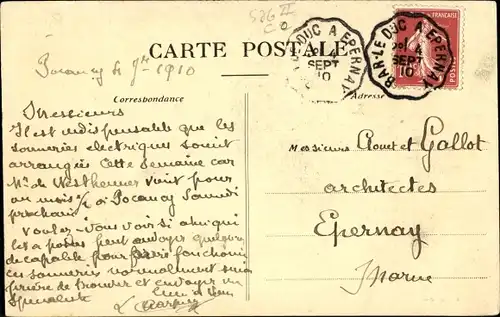 526 II
CARTE POSTALE
BAR-LE-DUC A EPERNAY
4
SEPT
10
BAR-LE-DUC A EPERNAY
4
SEPT
10
10
POSTES
Pocancy le 1910
Correspondance
Adresse
Messieurs
Il est indispensable que les
sonneries electriques soient
arrangées cette semaine car
Mr de Westheimer vient pour
un mois à Pocancy Samedi
prochain
Voulez-Vous voir si celui qui
les a posées peut envoyer quelqu'un
de capable pour faire fonctionner
ces sonneries normalement sinon
prière de trouver et envoyer un
Spécialiste
Messieurs et Gallot
architectes
Epernay
Marne